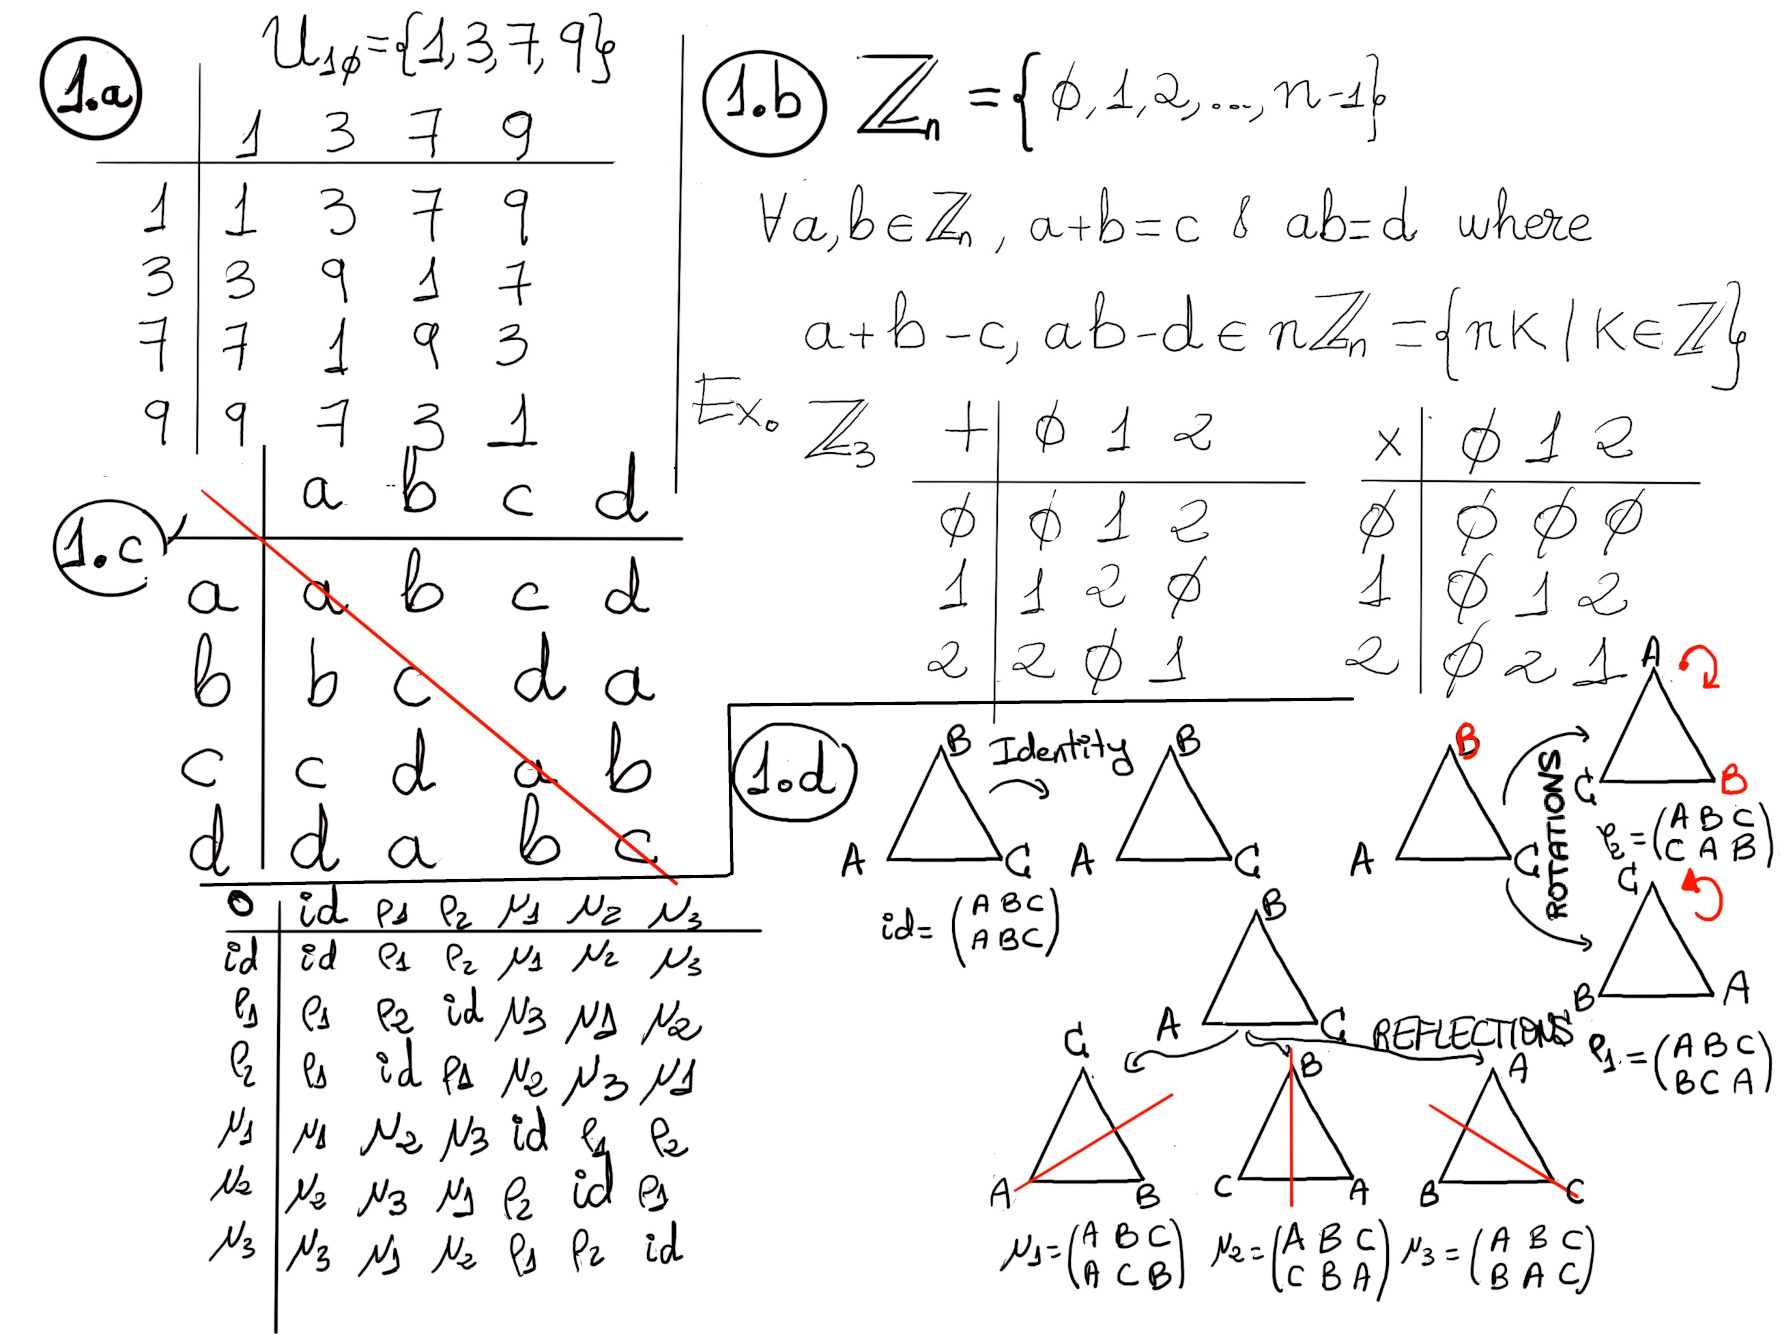 1.a
U₁₀={1,3,7,9}
1 3 7 9
1 1 3 7 9
3 3 9 1 7
7 7 1 9 3
9 9 7 3 1
1.b
ℤₙ = {0,1,2,...,n-1}
∀a,b∈ℤₙ, a+b=c & ab=d where
a+b-c, ab-d∈nℤₙ={nK|K∈ℤ}
Ex. ℤ₃
+ 0 1 2
0 0 1 2
1 1 2 0
2 2 0 1
x 0 1 2
0 0 0 0
1 0 1 2
2 0 2 1
1.c
a b c d
a a b c d
b b c d a
c c d a b
d d a b c
o id ρ₁ ρ₂ μ₁ μ₂ μ₃
id id ρ₁ ρ₂ μ₁ μ₂ μ₃
ρ₁ ρ₁ ρ₂ id μ₃ μ₁ μ₂
ρ₂ ρ₁ id ρ₁ μ₂ μ₃ μ₁
μ₁ μ₁ μ₂ μ₃ id ρ₁ ρ₂
μ₂ μ₂ μ₃ μ₁ ρ₂ id ρ₁
μ₃ μ₃ μ₁ μ₂ ρ₁ ρ₂ id
1.d
B
A C
Identity
B
A C
id= (A B C)
(A B C)
B
A C
ROTATIONS
A
C B
ρ₂=(A B C)
(C A B)
C
B A
ρ₁=(A B C)
(B C A)
B
A C
REFLECTIONS
C
A B
μ₁=(A B C)
(A C B)
B
C A
μ₂=(A B C)
(C B A)
A
B C
μ₃=(A B C)
(B A C)